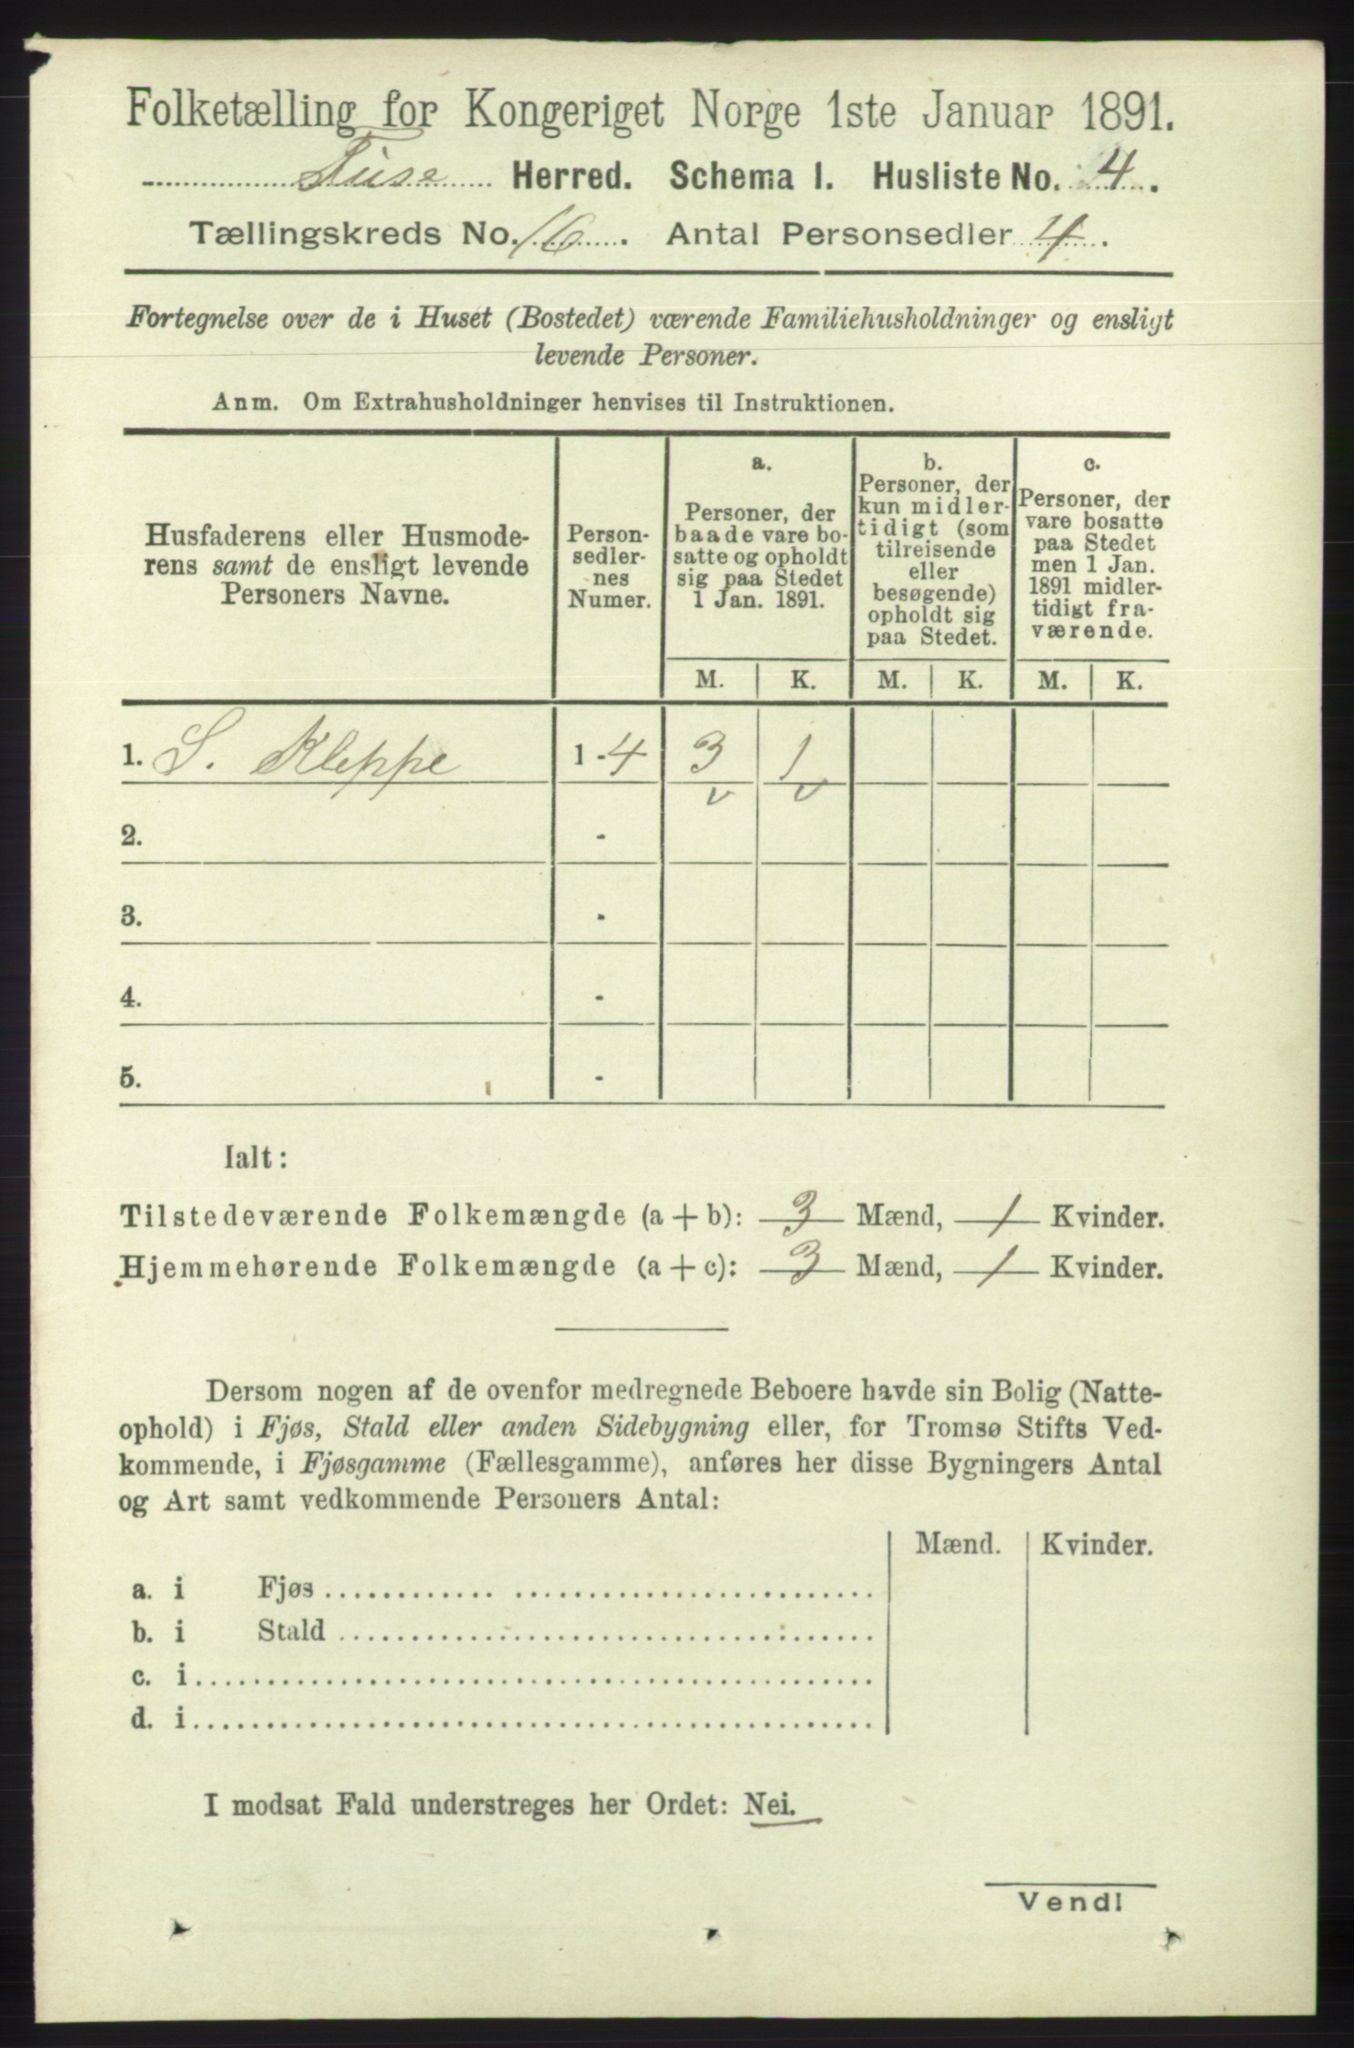 Folketælling for Kongeriget Norge 1ste Januar 1891.
Fuse Herred. Schema I. Husliste No. 4.
Tællingskreds No. 16. Antal Personsedler 4.
Fortegnelse over de i Huset (Bostedet) værende Familiehusholdninger og ensligt
levende Personer.
Anm. Om Extrahusholdninger henvises til Instruktionen.
Husfaderens eller Husmode-
rens samt de ensligt levende
Personers Navne.
Person-
sedler-
nes
Numer.
a.
Personer, der
baade vare bo-
satte og opholdt
sig paa Stedet
1 Jan. 1891.
b.
Personer, der
kun midler-
tidigt (som
tilreisende
eller
besøgende)
opholdt sig
paa Stedet.
c.
Personer, der
vare bosatte
paa Stedet
men 1 Jan.
1891 midler-
tidigt fra-
værende.
M. K. M. K. M. K.
1. S. Kleppe 1-4 3 1
v v
2. -
3. -
4. -
5. -
Ialt:
Tilstedeværende Folkemængde (a + b): 3 Mænd, 1 Kvinder.
Hjemmehørende Folkemængde (a + c): 3 Mænd, 1 Kvinder.
Dersom nogen af de ovenfor medregnede Beboere havde sin Bolig (Natte-
ophold) i Fjøs, Stald eller anden Sidebygning eller, for Tromsø Stifts Ved-
kommende, i Fjøsgamme (Fællesgamme), anføres her disse Bygningers Antal
og Art samt vedkommende Personers Antal:
Mænd. Kvinder.
a. i Fjøs
b. i Stald
c. i
d. i
I modsat Fald understreges her Ordet: Nei.
Vend!